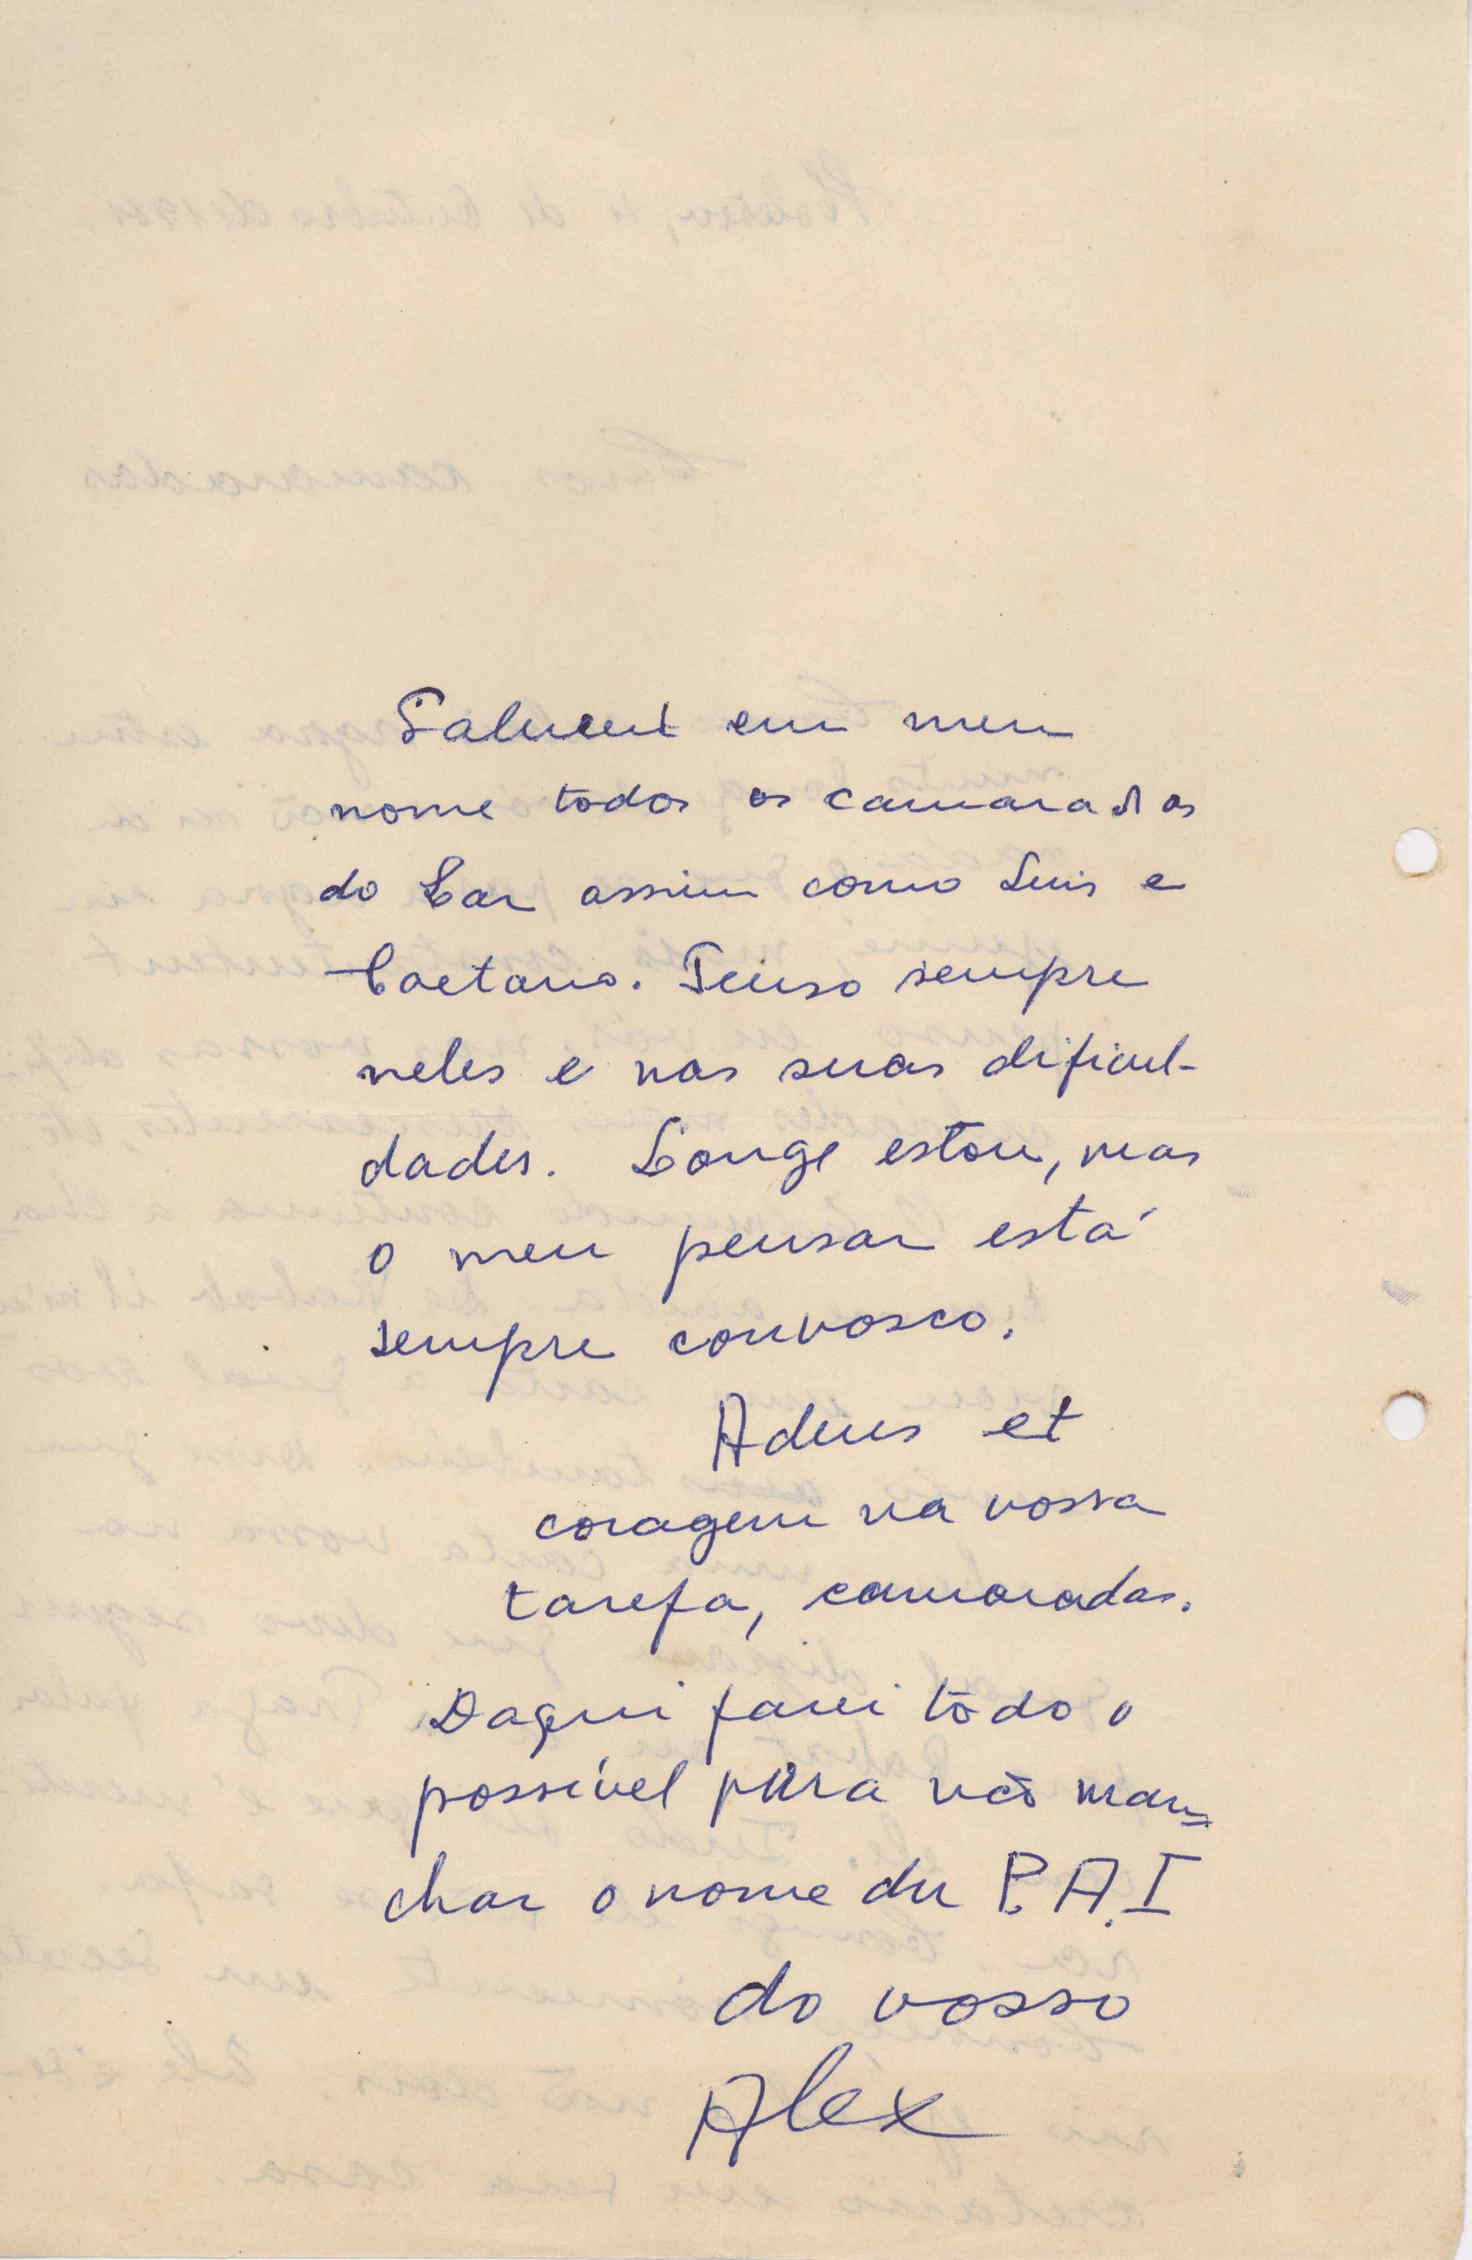 Saluent em meu
nome todos os camaradas
do Lar assim como Luis e
Caetano. Penso sempre
neles e nas suas dificul-
dades. Longe estou, mas
o meu pensar está
sempre convosco.
Adeus et
coragem na vossa
tarefa, camaradas.
Daqui farei tôdo o
possível para não man-
char o nome du P.A.I
do vosso
Alex